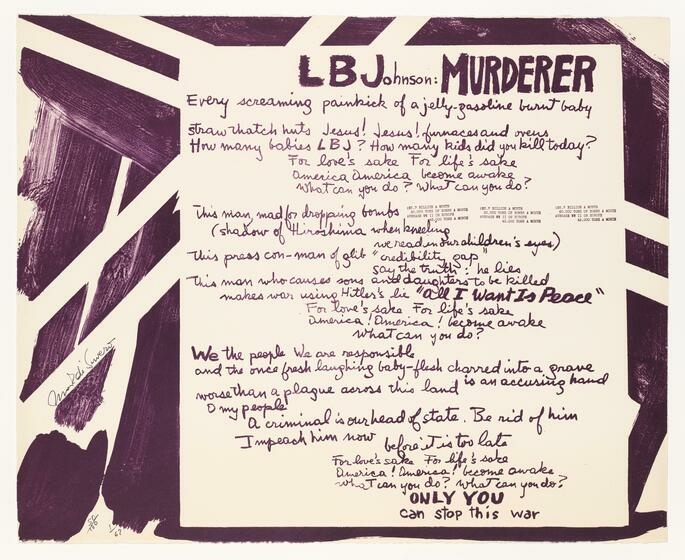 LBJohnson: MURDERER
Every screaming painkick of a jelly-gasoline burnt baby
straw thatch huts Jesus! Jesus! furnaces and ovens
How many babies LBJ? How many kids did you kill today?
For love's sake For life's sake
America America become awake
What can you do? What can you do?
This man, mad for dropping bombs
(shadow of Hiroshima when kneeling
we read in our children's eyes)
This press con-man of glib "credibility gap"
say the truth: he lies
This man who causes sons and daughters to be killed
makes war using Hitler's lie "All I Want Is Peace"
For love's sake For life's sake
America! America! become awake
What can you do?
We the people We are responsible
and the once fresh laughing baby-flesh charred into a grave
is an accusing hand
worse than a plague across this land
O my people
A criminal is our head of state. Be rid of him
Impeach him now before it is too late
For love's sake For life's sake
America! America! become awake
What can you do? What can you do?
ONLY YOU
can stop this war
Mark di Suvero